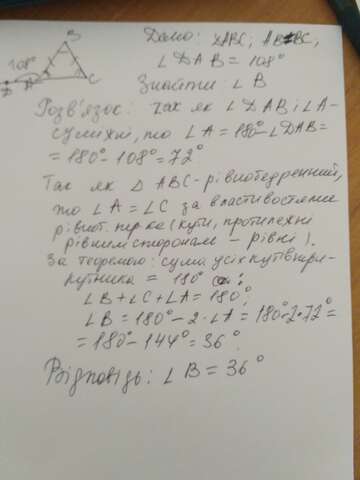 B
108°
D A C
Дано: △ABC; AB=BC,
∠DAB = 108°
Знайти: ∠B
Розв'язок: так як ∠DAB і ∠A-
суміжні, то ∠A = 180°-∠DAB=
= 180°-108°=72°
Так як △ABC-рівнобедренний,
то ∠A=∠C за властивостями
рівноб. тр-ка (кути, протилежні
рівним сторонам - рівні).
За теоремою: сума усіх кутів три-
кутника = 180° :
∠B+∠C+∠A=180°,
∠B = 180°-2·∠A=180°-2·72°=
=180°-144°=36°
Відповідь: ∠B=36°